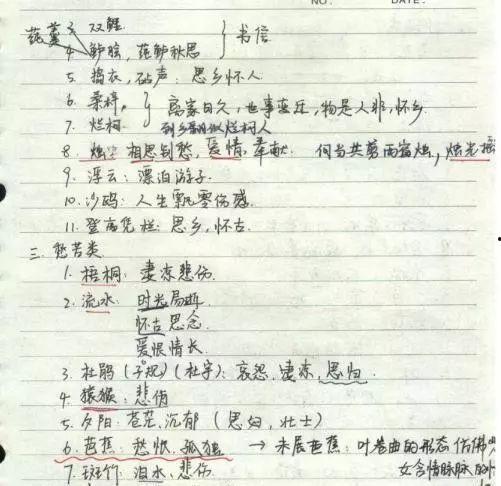 NO. DATE.
莼羹 3. 双鲤
4. 鲈脍, 莼鲈秋思 } 书信
5. 捣衣, 砧声: 思乡怀人.
6. 桑梓,
7. 烂柯 } 离家日久, 世事变迁, 物是人非, 怀乡
到乡翻似烂柯人
8. 烛: 相思别愁, 爱情, 奉献. 何当共剪西窗烛, 烛光
9. 浮云: 漂泊游子.
10. 沙鸥: 人生飘零伤感.
11. 登高凭栏: 思乡, 怀古.
三. 愁苦类
1. 梧桐: 凄凉悲伤.
2. 流水: 时光易逝
怀古思念.
爱恨情长.
3. 杜鹃 (子规) (杜宇): 哀怨, 凄凉, 思归.
4. 猿猴: 悲伤
5. 夕阳: 苍茫, 沉郁 (思妇, 壮士)
6. 芭蕉: 愁恨, 孤独 → 未展芭蕉: 叶卷曲的形态仿佛
女含情脉脉的
7. 斑竹: 泪水, 悲伤.